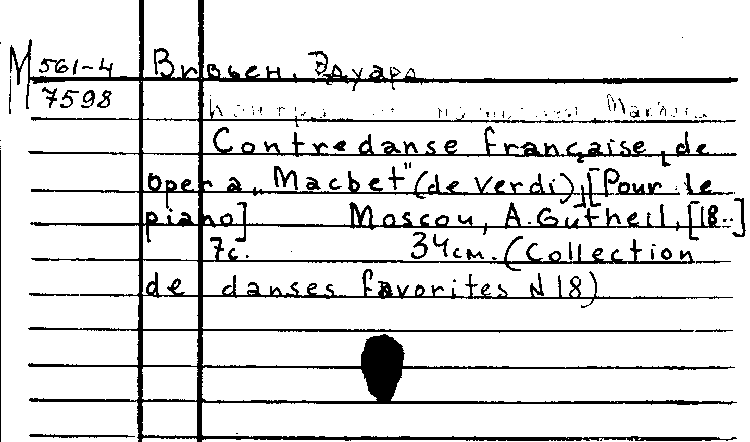 М 561-4
7598
Эдуард
Contredanse française, de
opera „Macbet" (de Verdi), [Pour le
piano] Moscou, A. Gutheil, [18..]
7с. 34см. (Collection
de danses favorites N 18)